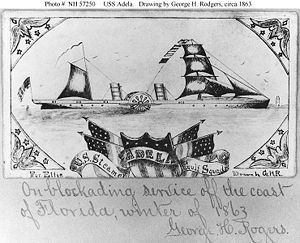 Photo # NH 57250 USS Adela. Drawing by George H. Rodgers, circa 1863
U.S. Steamer ADELA Gulf Squad
For Ellie Drawn by G.H.R.
On blockading service off the coast
of Florida, winter of 1863
George H. Rogers.